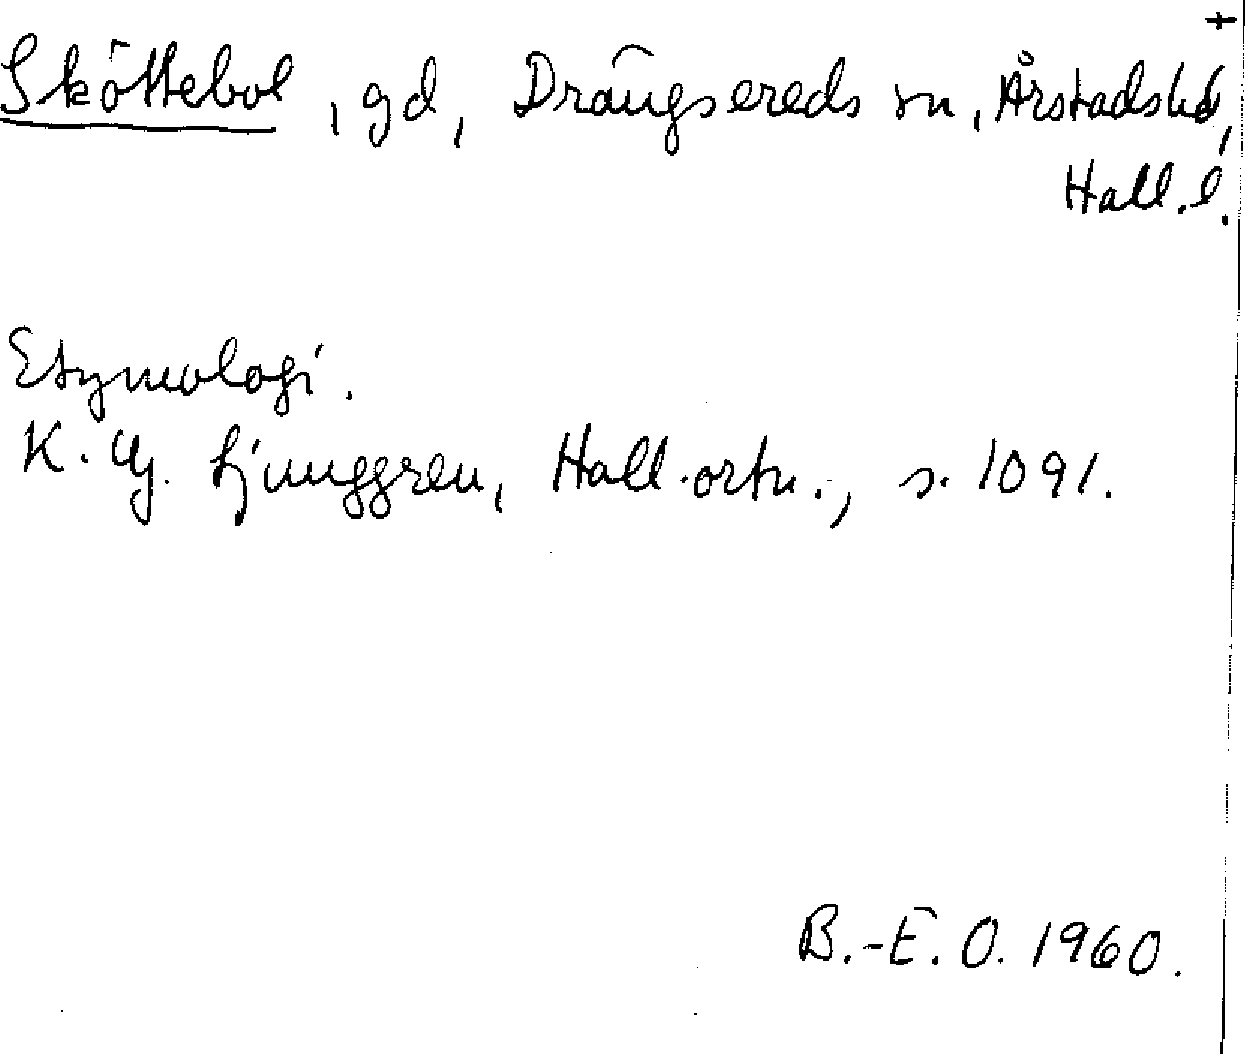 +
Sköttebol, gd, Drängsereds sn, Årstads hd,
Hall. l.
Etymologi.
K. G. Ljunggren, Hall. ortn., s. 1091.
B.-E. O. 1960.